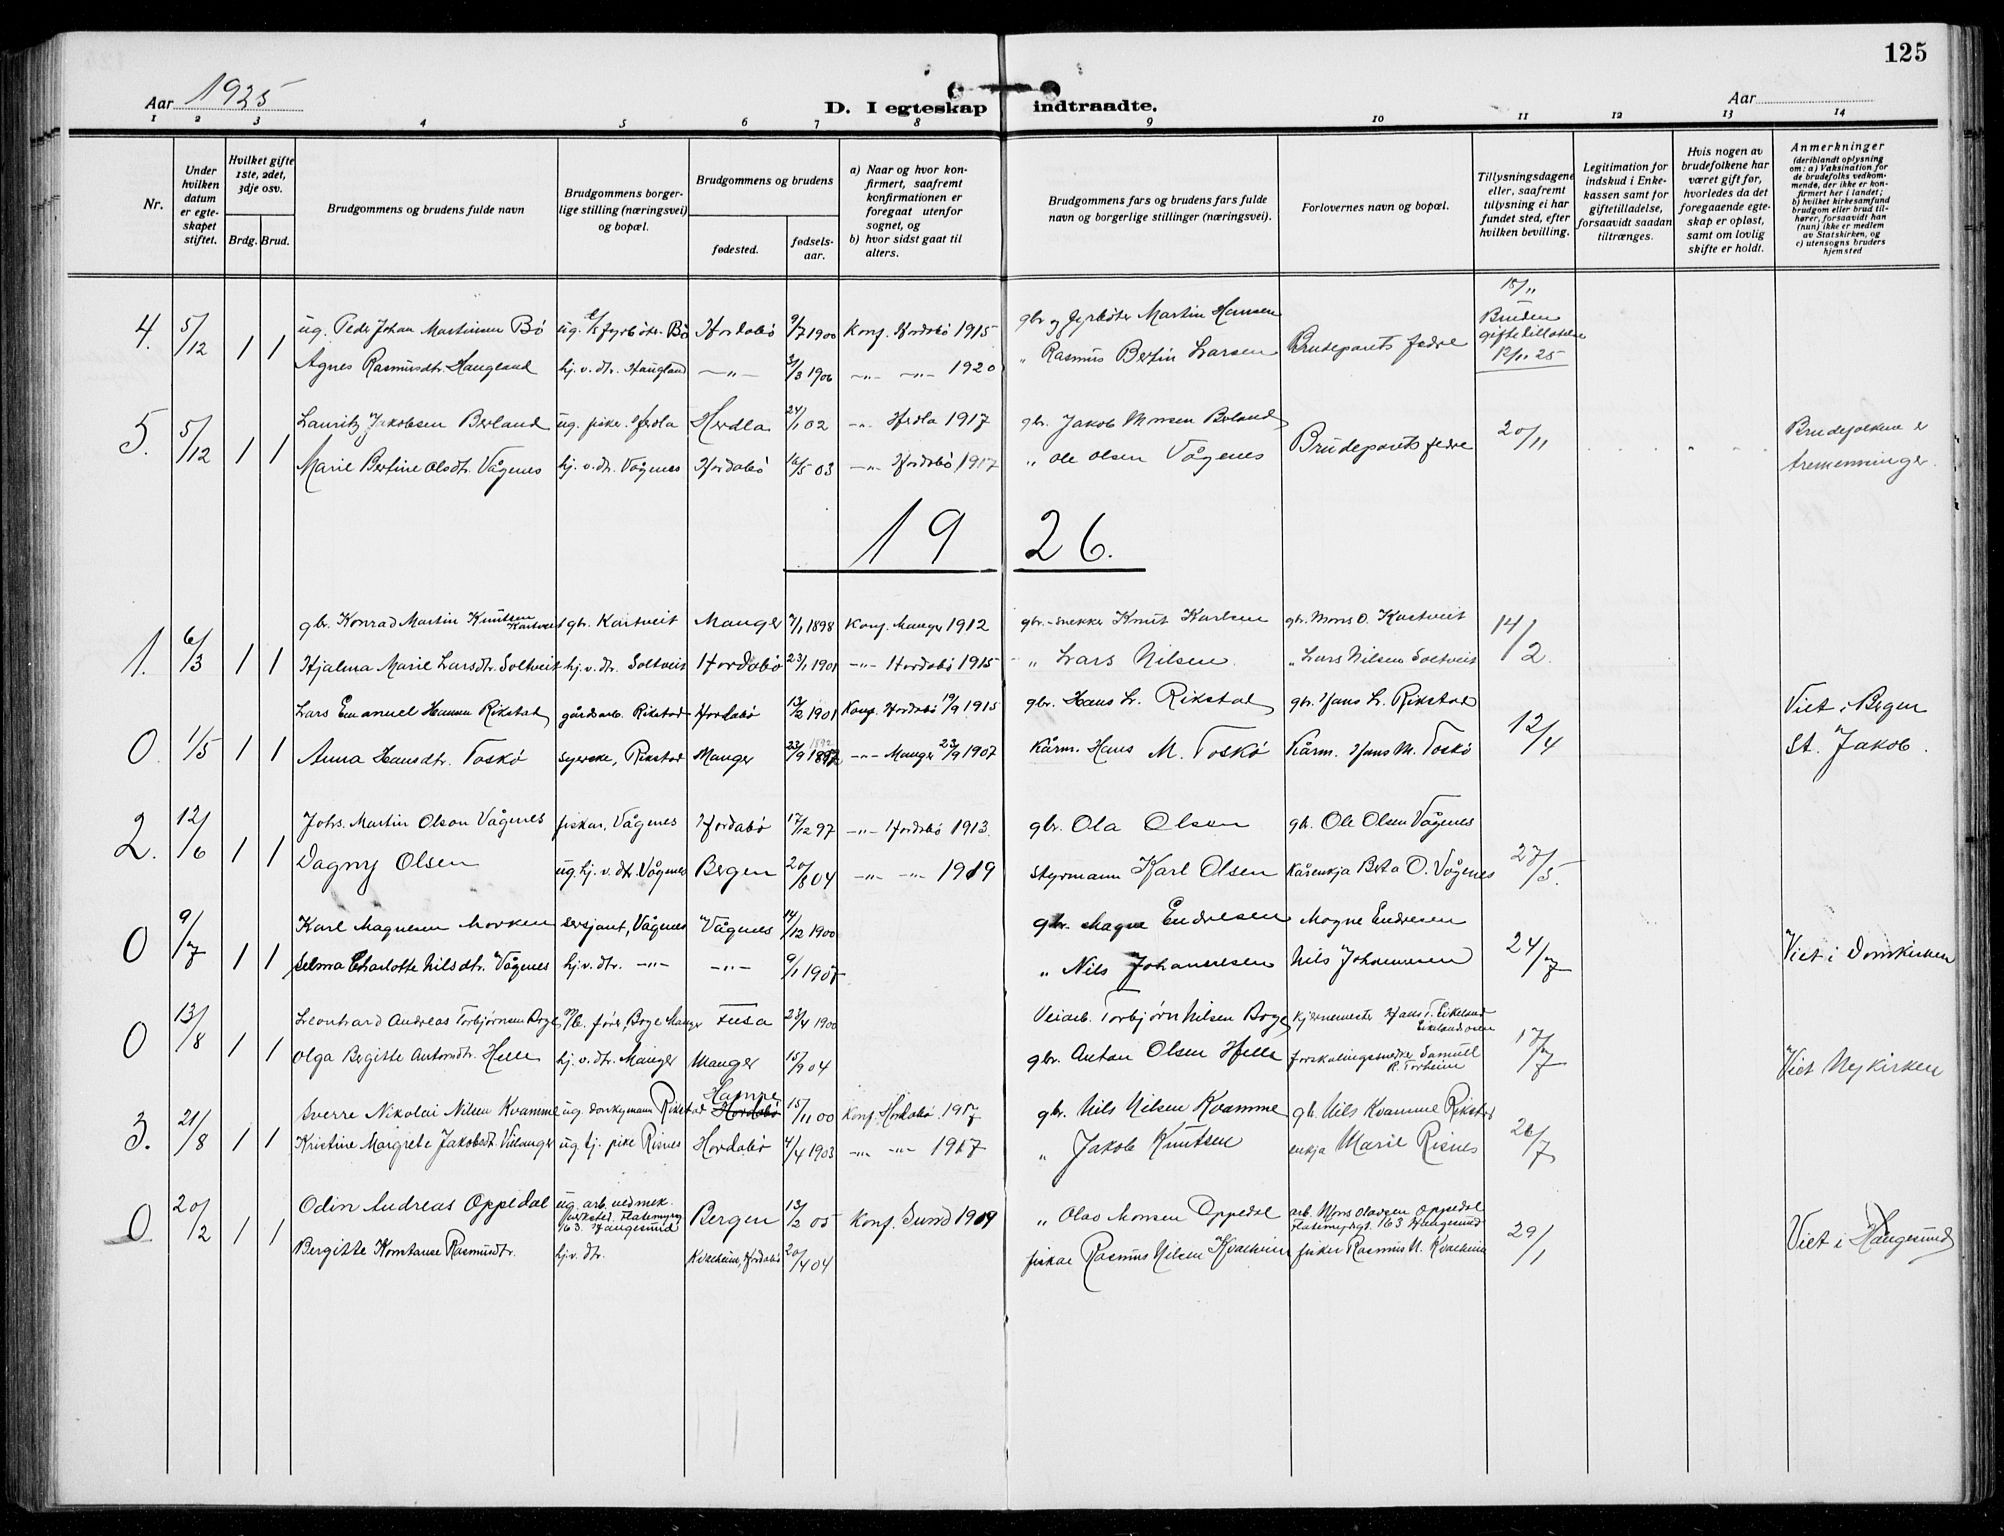 125
Aar 1925
D. I egteskap indtraadte.
Aar
1 2 3 4 5 6 7 8 9 10 11 12 13 14
Nr.
Under hvilken datum er egteskapet stiftet.
Hvilket gifte 1ste, 2det, 3dje osv.
Brdg. Brud.
Brudgommens og brudens fulde navn
Brudgommens borgerlige stilling (næringsvei) og bopæl.
Brudgommens og brudens
fødested.
fødselsaar.
a) Naar og hvor konfirmert, saafremt konfirmationen er foregaat utenfor sognet, og
b) hvor sidst gaat til alters.
Brudgommens fars og brudens fars fulde navn og borgerlige stillinger (næringsvei).
Forlovernes navn og bopæl.
Tillysningsdagene eller, saafremt tillysning ei har fundet sted, efter hvilken bevilling.
Legitimation for indskud i Enkekassen samt for giftetilladelse, forsaavidt saadan tiltrænges.
Hvis nogen av brudefolkene har været gift før, hvorledes da det foregaaende egteskap er opløst, samt om lovlig skifte er holdt.
Anmerkninger
(deriblandt oplysning om: a) Vaksination for de brudefolks vedkommende, der ikke er konfirmert her i landet; b) hvilket kirkesamfund brudgom eller brud tilhører, forsaavidt han (hun) ikke er medlem av Statskirken, og c) utensogns bruders hjemsted
4. 5/12 1 1 ug. Peder Johan Martinsen Bø ug. fyrbøter Bø Hordabø 9/7 1900 Konf. Hordabø 1915 gbr og fyrbøter Martin Hansen Brudeparets fedre 15/11 Bruden giftetillatelse 12/11 25
Agnes Rasmusdtr. Haugland hj. v. dtr. Haugland —"— 3/3 1906 —"— —"— 1920 " Rasmus Bertin Larsen
5. 5/12 1 1 Lauritz Jakobsen Berland ug. fisker. Herdla Herdla 24/1 02 —"— Herdla 1917 gbr. Jakob Monsen Berland Brudeparets fedre 20/11 Brudefolkene er
Marie Bertine Olsdtr. Vågenes hj. v. dtr. Vågenes Hordabø 16/5 03 —"— Hordabø 1917 " Ole Olsen Vågenes tremenninger.
19 26.
1. 6/3 1 1 gbr. Konrad Martin Knutsen Kartveit gbr. Kartveit Manger 7/1 1898 Konf. Manger 1912 gbr.-snekker Knut Karlsen gbr. Mons O. Kartveit 14/2
Hjalma Marie Larsdtr. Soltveit hj. v. dtr. Soltveit Hordabø 23/1 1901 —"— Hordabø 1915 " Lars Nilsen. " Lars Nilsen Soltveit
0. 1/5 1 1 Lars Emanuel Hansen Rikstad gårdsarb. Rikstad Hordabø 13/2 1901 Konf. Hordabø 19/9 1915 gbr. Hans L. Rikstad gbr. Hans L. Rikstad 12/4 Viet i Bergen
Anna Hansdtr. Toskø syerske, Rikstad Manger 23/9 1892 1892 —"— Manger 23/9 1907 Kårm. Hans M. Toskø Kårm. Hans M. Toskø St. Jakob.
2. 12/6 1 1 Johs. Martin Olson Vågenes fiskar, Vågenes Hordabø 17/12 97 —"— Hordabø 1913 gbr. Ola Olsen gb. Ole Olsen Vågenes 27/5.
Dagny Olsen ug. hj. v. dtr. Vågenes Bergen 20/8 04 —"— —"— 1919 Styrmann Karl Olsen Kårenkja Berta O. Vågenes
0 9/7 1 1 Karl Magnesen Morken sersjant, Vågenes Vågenes 14/12 1900 gbr. Magne Endresen Mogne Endresen 24/7 Viet i Domkirken
Selma Charlotte Nilsdtr. Vågenes hj. v. dtr. —"— —"— 9/1 1907 " Nils Johannesen Nils Johannesen
0 13/8 1 1 Leonhard Andreas Torbjørnsen Boge fører, Boge Manger Fusa 23/4 1900 Veiarb. Torbjørn Nilsen Boge Hans T. Eikeland Eikelandsosen 17/7 Viet Nykirken
Olga Bergitte Antonsdtr. Helle hj. v. dtr. Manger Manger 15/9 04 gbr. Anton Olsen Helle Samuel R. Torheim
3. 21/8 1 1 Sverre Nikolai Nilsen Kvamme ug. donkymann Rikstad Hamre Hordabø 15/11 00 Konf. Hordabø 1917 gbr. Nils Nilsen Kvamme gb. Nils Kvamme Rikstad 26/7
Kristine Margrete Jakobsdt. ug. tj. pike Risnes Hordabø 4/4 1903 —"— —"— 1917 " Jakob Knutsen enkja Marie Risnes
0 20/2 1 1 Odin Andreas Oppedal ug. arb. ved mek. verksted. Flatemyrg 163. Haugesund Bergen 13/2 05 Konf. Sund 1919 " Olav Monsen Oppedal arb. Mons Olavsen Oppedal Flatemyrgt. 163 Haugesund 29/1 Viet i Haugesund
Bergitte Konstanse Rasmusdtr. hj. v. dtr. Kvalheim, Hordabø 20/4 04 fiskar Rasmus Nilsen Kvalheim fisker Rasmus N. Kvalheim